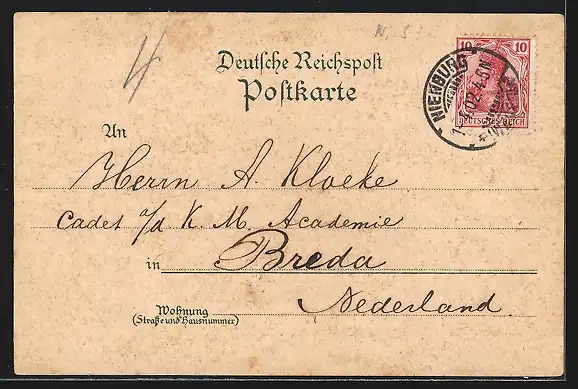 Deutsche Reichspost
Postkarte
10 10
DEUTSCHES REICH
NIENBURG
02.4-5N
(WESER)
An
Herrn A. Kloeke
Cadet a/d K. M. Academie
in Breda
Nederland.
Wohnung
(Straße und Hausnummer)